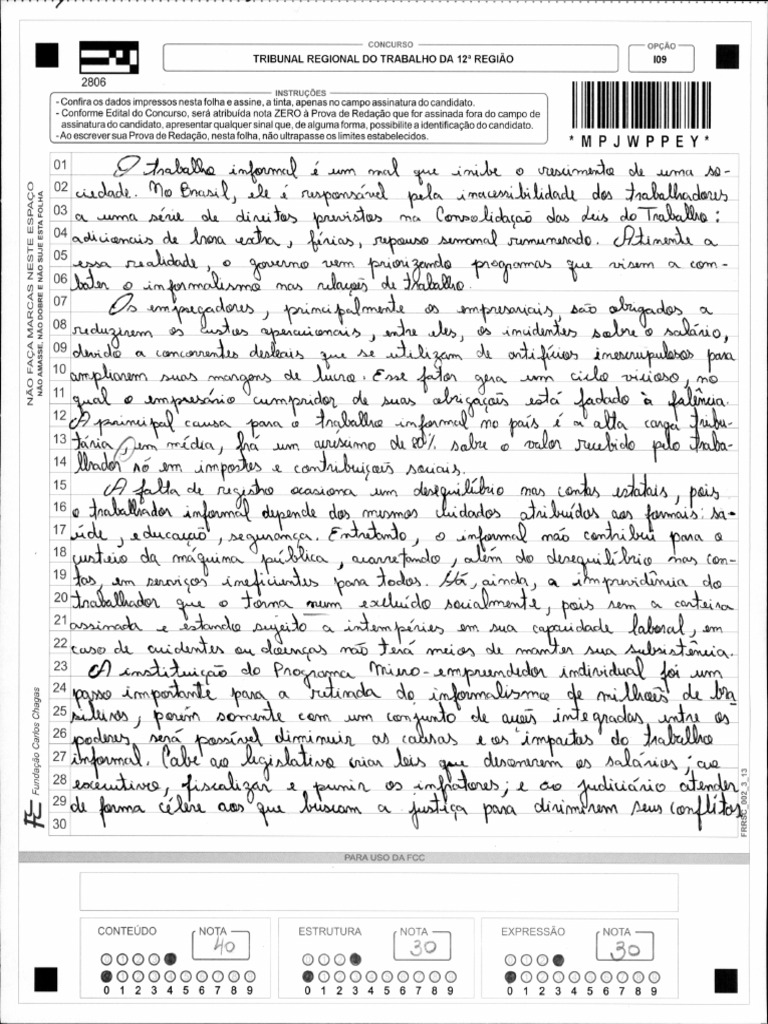 CONCURSO
TRIBUNAL REGIONAL DO TRABALHO DA 12ª REGIÃO
OPÇÃO
I09
2806
INSTRUÇÕES
- Confira os dados impressos nesta folha e assine, a tinta, apenas no campo assinatura do candidato.
- Conforme Edital do Concurso, será atribuída nota ZERO à Prova de Redação que for assinada fora do campo de
assinatura do candidato, apresentar qualquer sinal que, de alguma forma, possibilite a identificação do candidato.
- Ao escrever sua Prova de Redação, nesta folha, não ultrapasse os limites estabelecidos.
* M P J W P P E Y *
NÃO FAÇA MARCAS NESTE ESPAÇO
NÃO AMASSE, NÃO DOBRE E NÃO SUJE ESTA FOLHA
01 O trabalho informal é um mal que inibe o crescimento de uma so-
02 ciedade. No Brasil, ele é responsável pela inacessibilidade dos trabalhadores
03 a uma série de direitos previstos na Consolidação das Leis do Trabalho:
04 adicionais de hora extra, férias, repouso semanal remunerado. Atinente a
05 essa realidade, o governo vem priorizando programas que visem a com-
06 bater o informalismo nas relações de trabalho.
07 Os empregadores, principalmente os empresariais, são obrigados a
08 reduzirem os custos operacionais, entre eles, os incidentes sobre o salário,
09 devido a concorrentes desleais que se utilizam de artifícios inescrupulosos para
10 ampliarem suas margens de lucro. Esse fator gera um ciclo vicioso, no
11 qual o empresário cumpridor de suas obrigações está fadado à falência.
12 A principal causa para o trabalho informal no país é a alta carga tribu-
13 tária, em média, há um acréscimo de 80% sobre o valor recebido pelo traba-
14 lhador só em impostos e contribuições sociais.
15 A falta de registro ocasiona um desequilíbrio nas contas estatais, pois
16 o trabalhador informal depende dos mesmos cuidados atribuídos aos formais: sa-
17 úde, educação, segurança. Entretanto, o informal não contribui para o
18 custeio da máquina pública, acarretando, além do desequilíbrio nas con-
19 tas, em serviços ineficientes para todos. Há, ainda, a imprevidência do
20 trabalhador que o torna num excluído socialmente, pois sem a carteira
21 assinada e estando sujeito a intempéries em sua capacidade laboral, em
22 caso de acidentes ou doenças não terá meios de manter sua subsistência.
23 A instituição do Programa Micro-empreendedor individual foi um
24 passo importante para a retirada do informalismo de milhões de bra-
25 sileiros, porém somente com um conjunto de ações integradas entre os
26 poderes será possível diminuir as causas e os impactos do trabalho
27 informal. Cabe ao legislativo criar leis que desonerem os salários; ao
28 executivo, fiscalizar e punir os infratores; e ao judiciário atender
29 de forma célere aos que buscam a justiça para dirimirem seus conflitos.
30
Fundação Carlos Chagas
FRRSC_002_3_13
PARA USO DA FCC
CONTEÚDO NOTA 40
0 1 2 3 4 5 6 7 8 9
ESTRUTURA NOTA 30
0 1 2 3 4 5 6 7 8 9
EXPRESSÃO NOTA 30
0 1 2 3 4 5 6 7 8 9